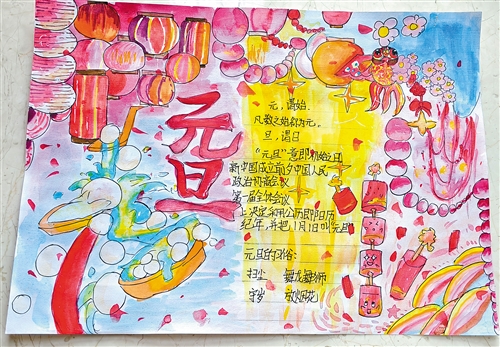 元旦
元，谓始，
凡数之始称为元。
旦，谓日
“元旦”意即初始之日
新中国成立前夕中国人民
政治协商会议
第一届全体会议
上决定采用公历即阳历
纪年，并把1月1日叫元旦
元旦的习俗：
扫尘 舞龙舞狮
守岁 放烟花